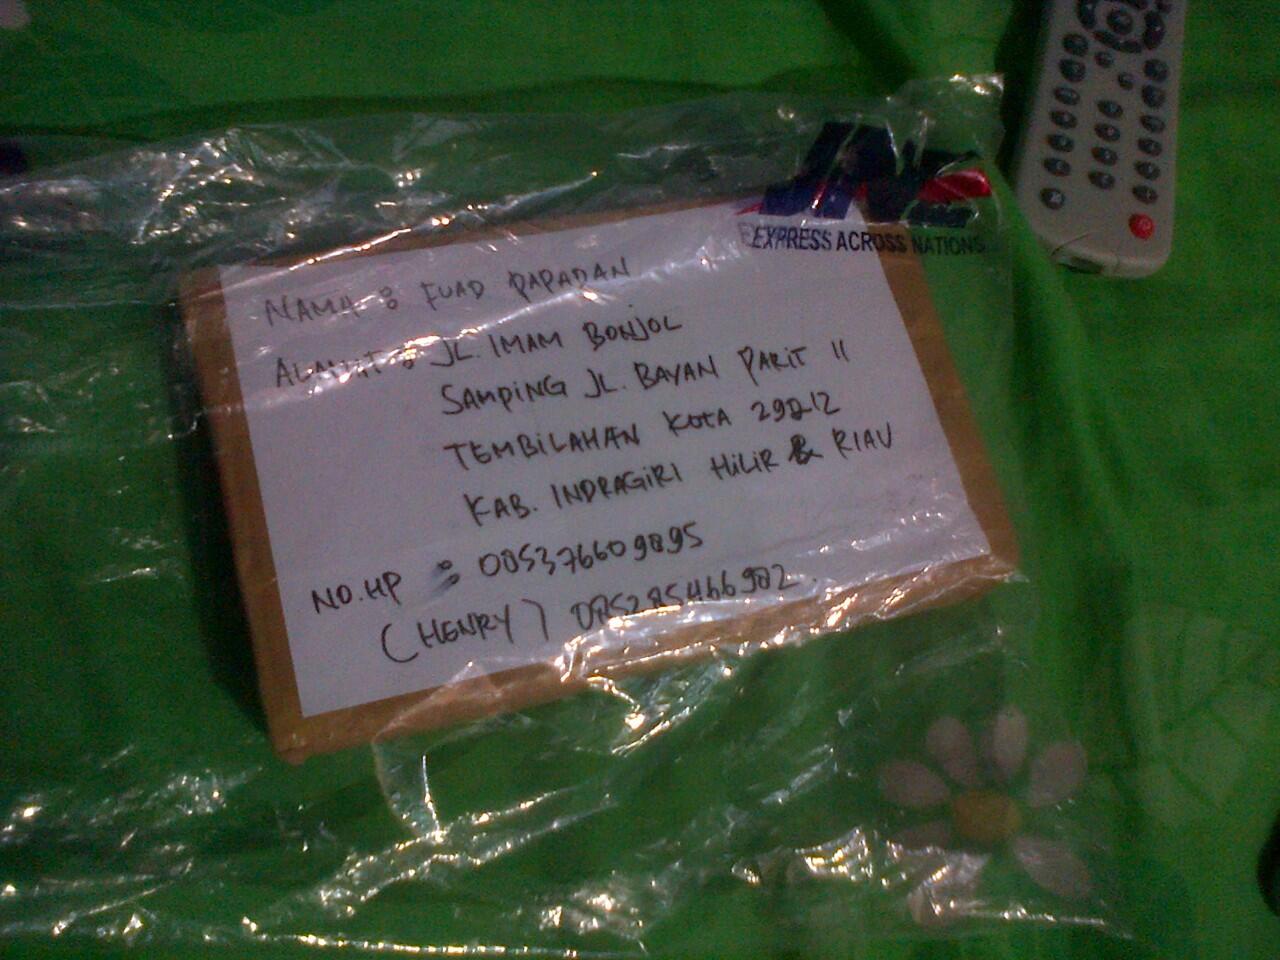 JNE
EXPRESS ACROSS NATIONS
NAMA : FUAD PAPADAN
ALAMAT : JL. IMAM BONJOL
SAMPING JL. BAYAN PARIT 11
TEMBILAHAN KOTA 29212
KAB. INDRAGIRI HILIR RIAU
NO.HP : 085376609895
(HENRY) 085285466982